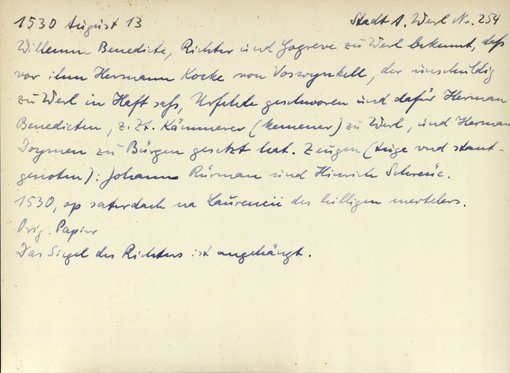 1530 August 13 Stadt A. Werl Nr. 254
Wilhelm Benedicte, Richter und Gogreve zu Werl bekennt, daß
vor ihm Hermann Kocke von Voswynkell, der unschuldig
zu Werl in Haft saß, Urfehde geschworen und dafür Herman
Benedicten, z. Zt. Kämmerer (kemener) zu Werl, und Herman
Doymen zu Bürgen gesetzt hat. Zeugen (tuge vnd stant-
genoten): Johann Rürman und Hinrich
1530, op saterdach na Laurencii des hilligen mertelers.
Orig. Papier
Das Siegel des Richters ist angehängt.